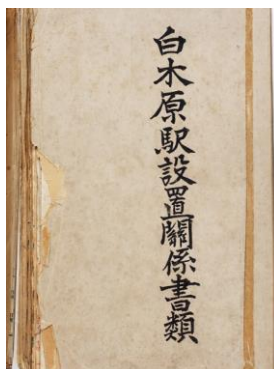 白木原駅設置關係書類